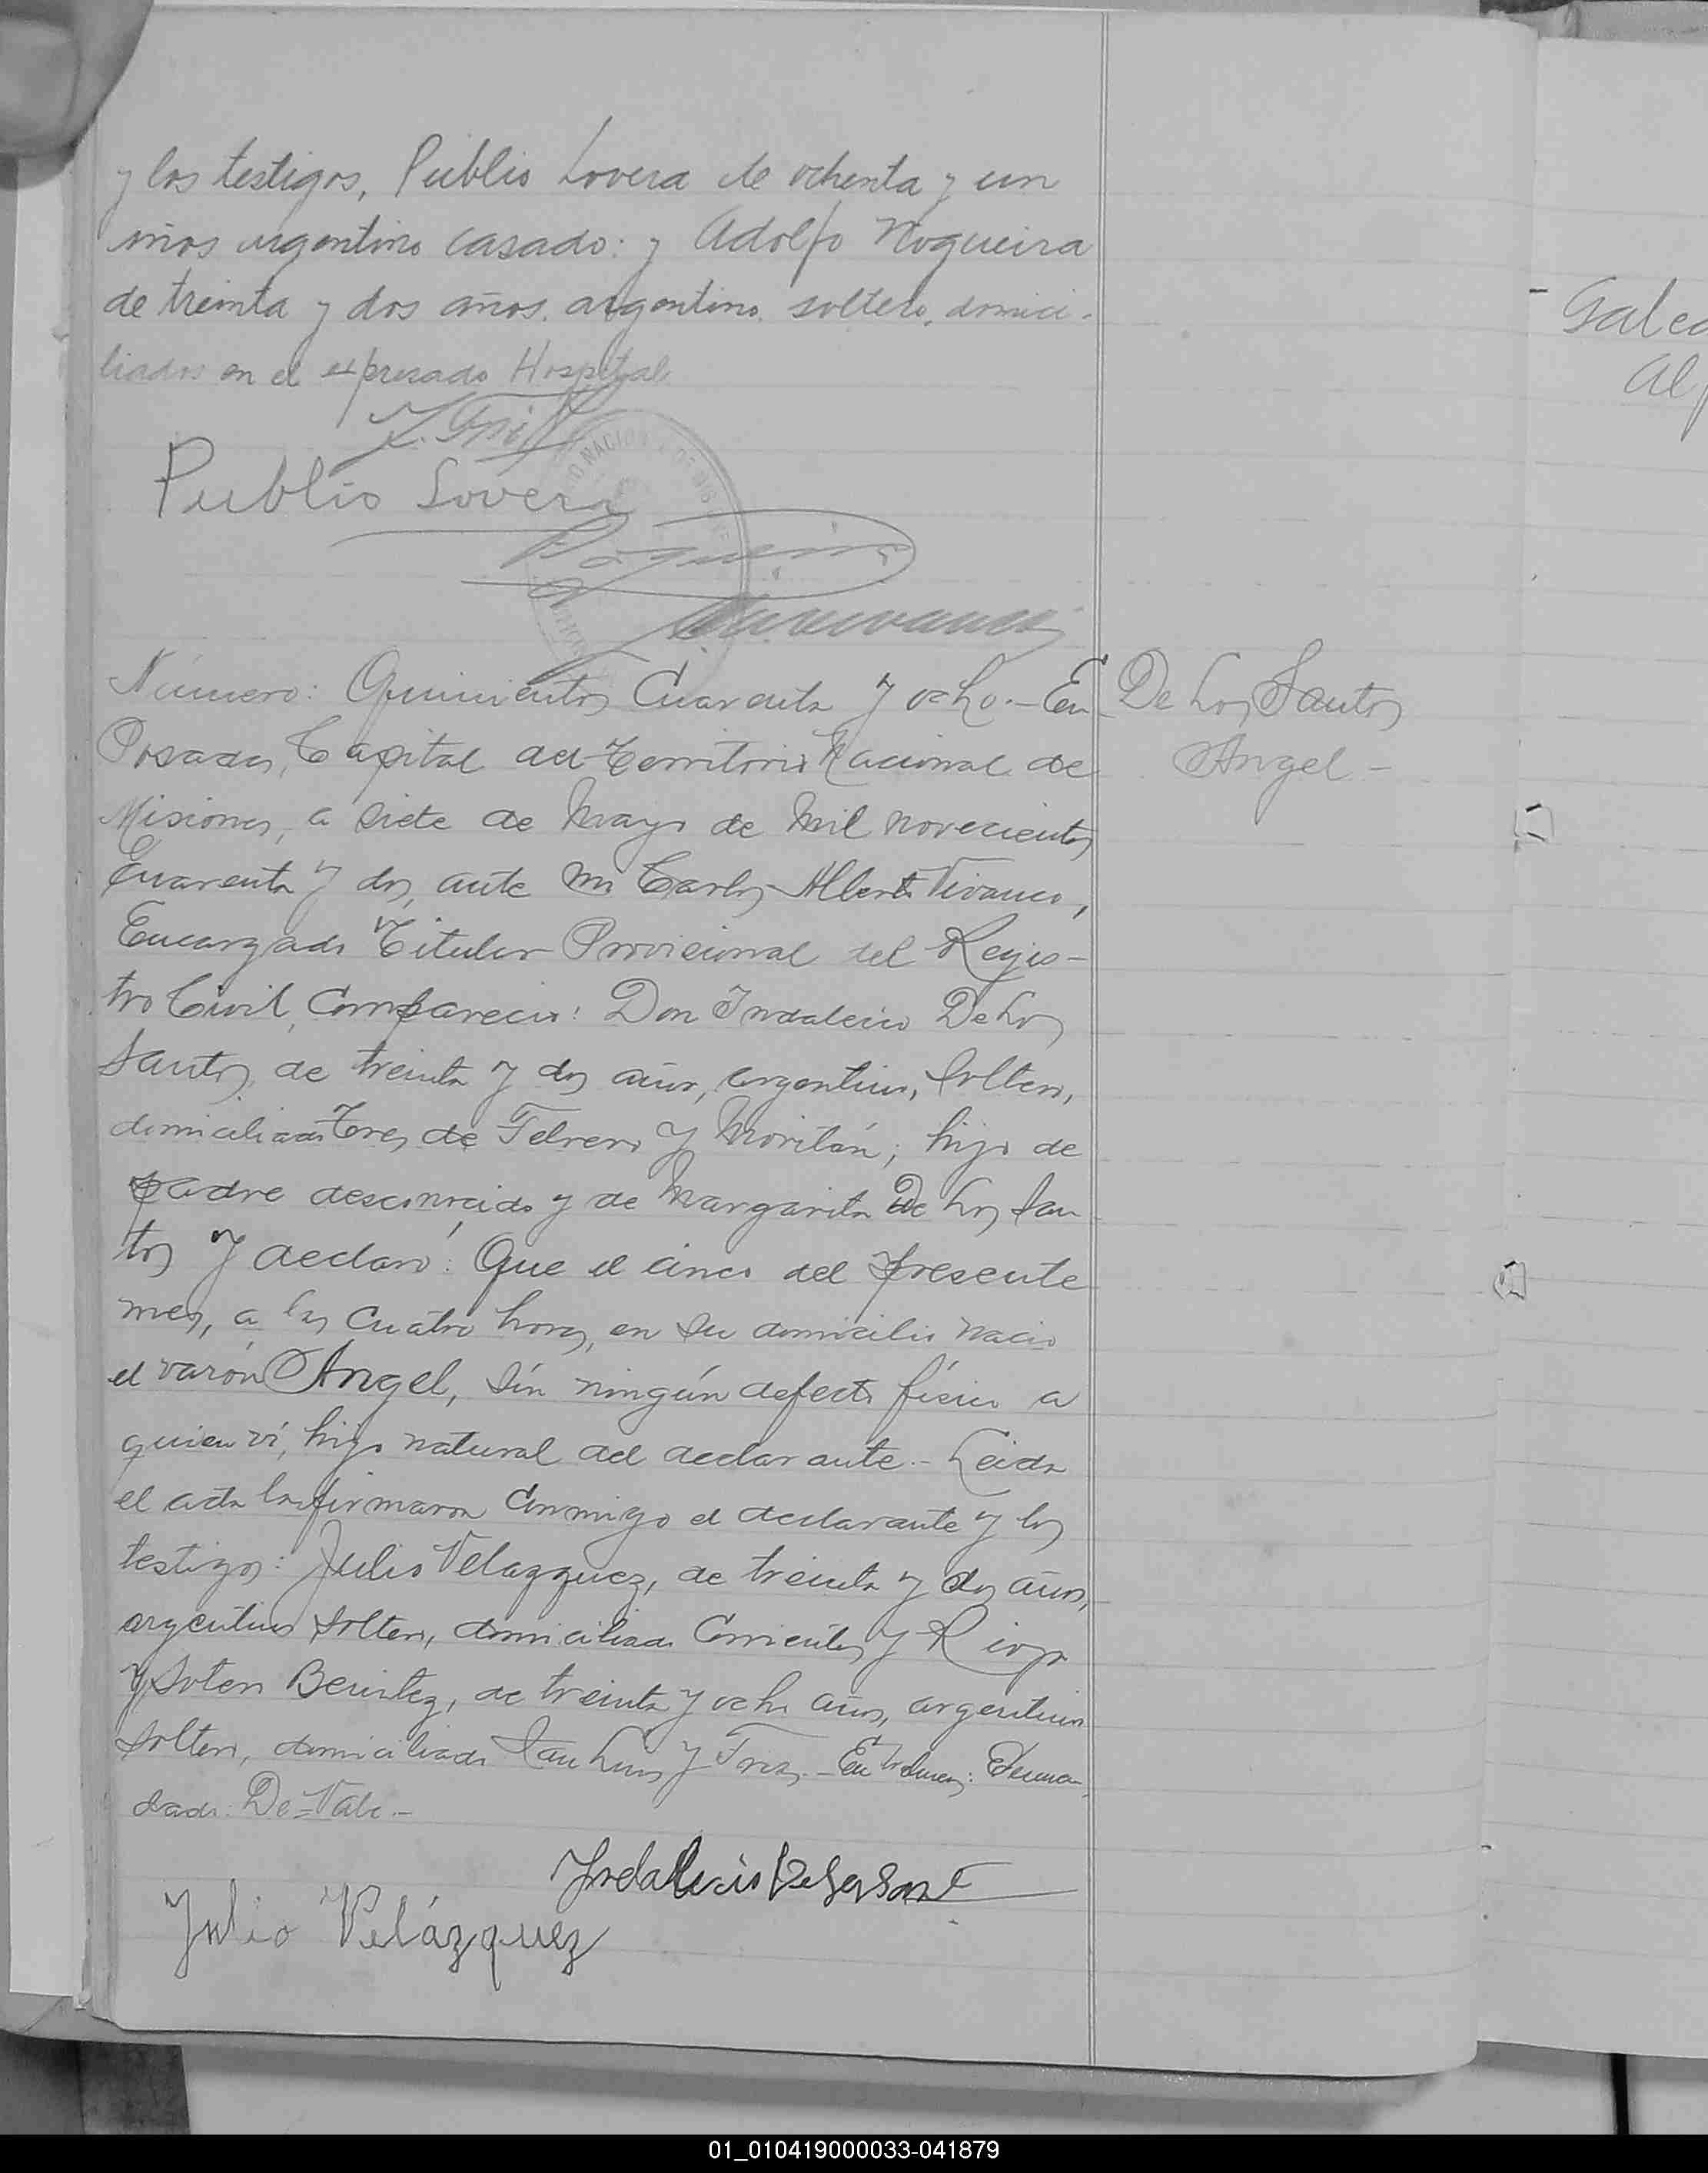 y los testigos, Publio Lovera de ochenta y un
años argentino casado: y Adolfo Nogueira
de treinta y dos años. argentino. soltero. domici-
liados en el expresado Hospital
Publio Lovera
Nogueira
Número: Quinientos Cuarenta y ocho.- En
Posadas, Capital del Territorio Nacional de
Misiones, a siete de Mayo de Mil novecientos
Cuarenta y dos, ante mi Carlos Alberto Vivanco,
Encargado Titular Provicional del Regis-
tro Civil, Compareció: Don Indalecio De Los
Santos, de treinta y dos años, argentino, soltero,
domiciliado Tres de Febrero y Moritán; hijo de
padre desconocido y de Margarita De Los San
tos y declaró: Que el cinco del presente
mes, a las cuatro horas, en su domicilio nació
el varón Angel, sín ningún defecto físico a
quien ví, hijo natural del declarante.- Leida
el acta la firmaron conmigo el declarante y los
testigos: Julio Velazquez, de treinta y dos años,
argentino soltero, domiciliado Corrientes y Rioja
y Sotero Benitez, de treinta y ocho años, argentino
soltero, domiciliado San Luis y Frias.- Enmen-
dado: De=Vale.-
Indalecio De Los Sant
Julio Velázquez
De Los Santos
Angel -
01_010419000033-041879